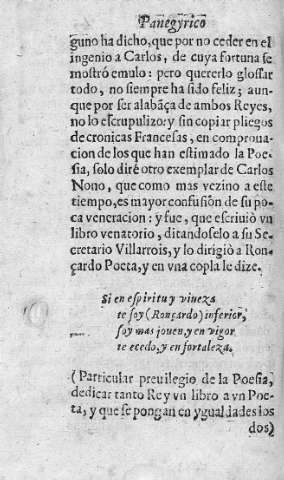 Panegyrico
guno ha dicho, que por no ceder en el
ingenio a Carlos, de cuya fortuna se
mostró emulo: pero quererlo glossar
todo, no siempre ha sido feliz; aun-
que por ser alabãça de ambos Reyes,
no lo escrupulizo: y sin copiar pliegos
de cronicas Francesas, en comproua-
cion de los que han estimado la Poe-
sia, solo diré otro exemplar de Carlos
Nono, que como mas vezino a este
tiempo, es mayor confusiõn de su po-
ca veneracion: y fue, que escriuiò vn
libro venatorio, ditandoselo a su Se-
cretario Villarrois, y lo dirigiò a Ron-
çardo Poeta, y en vna copla le dize.
Si en espiritu y viueza
te soy (Ronçardo) inferior,
soy mas jouen, y en vigor
te ecedo, y en fortaleza.
(Particular preuilegio de la Poesia,
dedicar tanto Rey vn libro a vn Poe-
ta, y que se pongan en ygualdades los
dos)